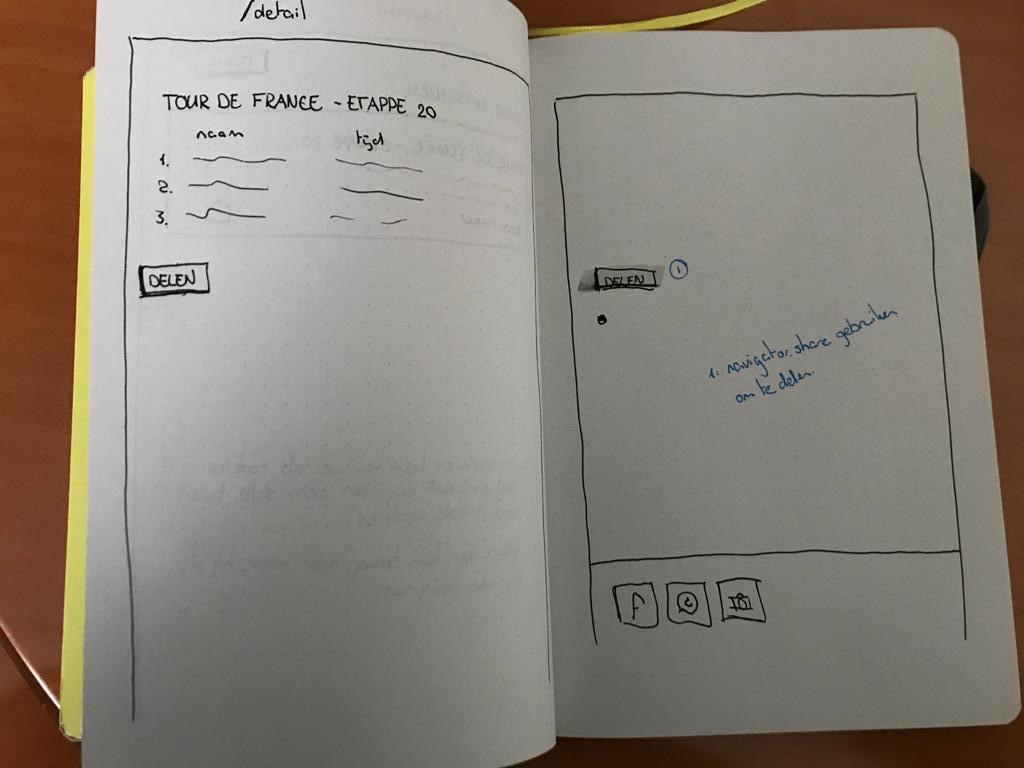 /detail
TOUR DE FRANCE - ETAPPE 20
naam tijd
1.
2.
3.
DELEN
DELEN 1
1. navigator.share gebruiken
om te delen.
f